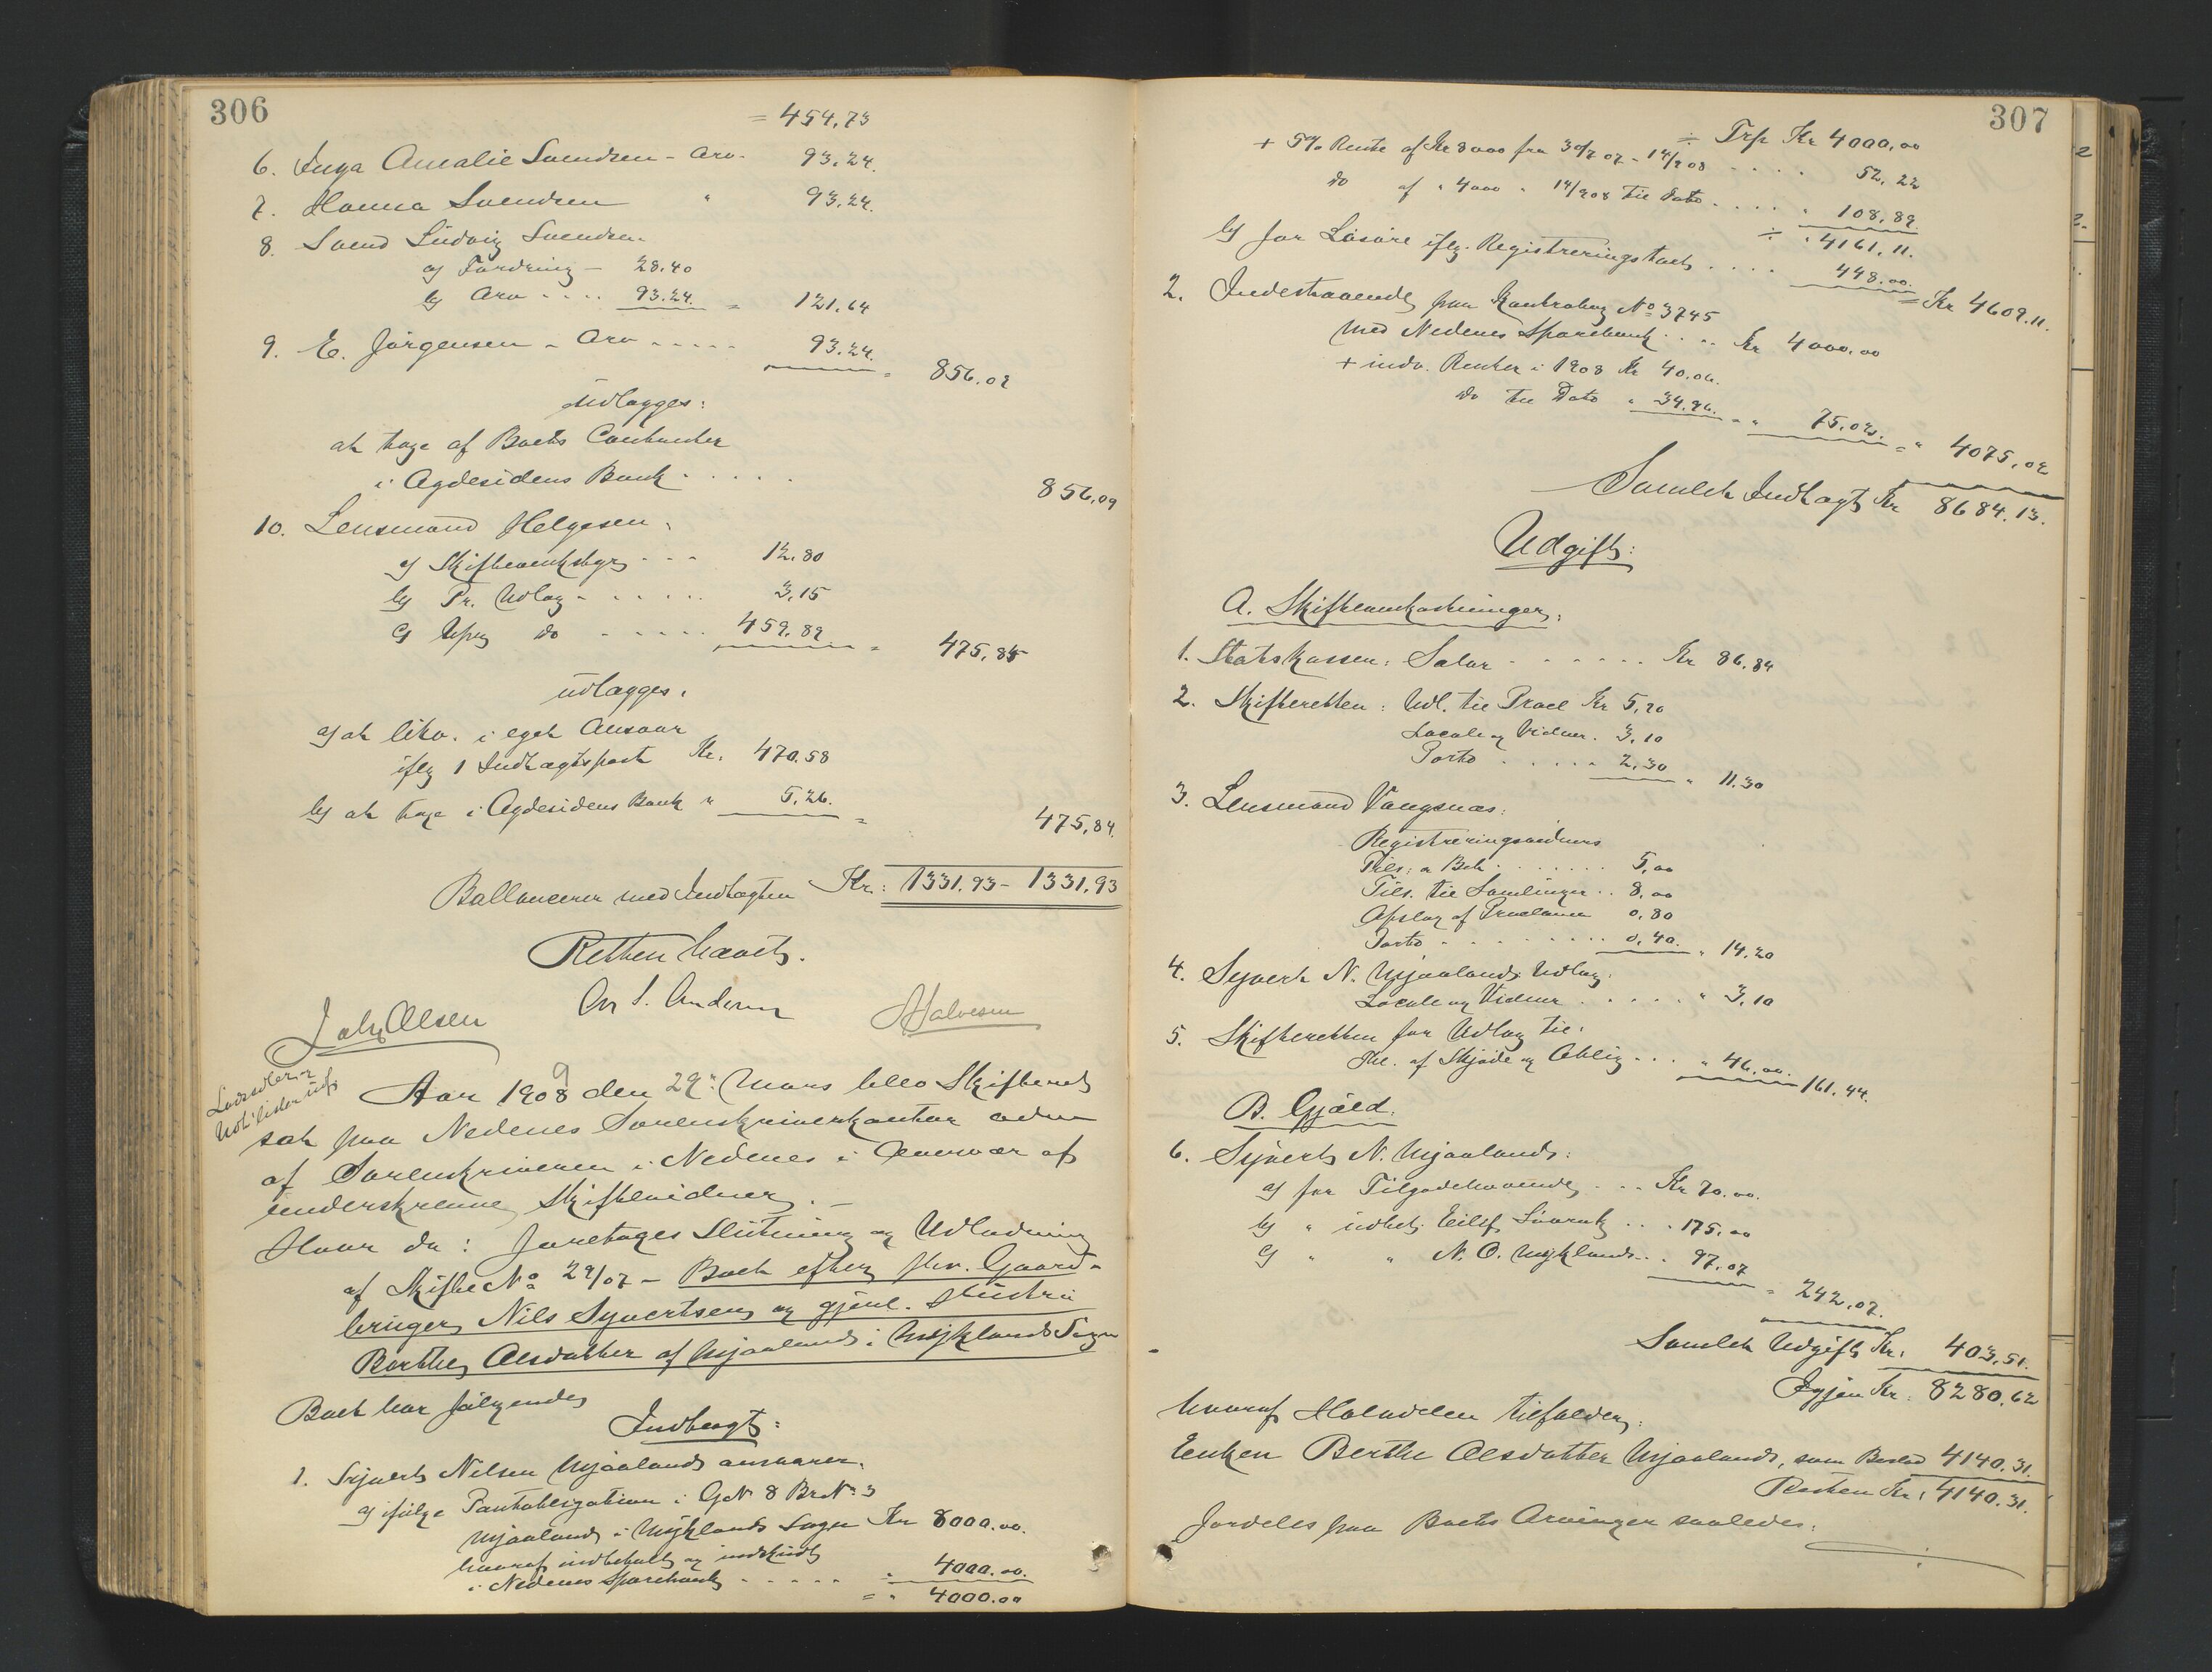 306
= 454,73
6. Inga Amalie Svendsen - Arv - 93.24.
7. Hanna Svendsen " 93.24.
8. Svend Ludvig Svendsen
a) Fordring - 28.40
b) Arv .... 93.24. = 121,64
9. E. Jörgensen - Arv ..... 93.24. = 856.09
Udlægges:
at tage af Boets Contanter
i Agdesidens Bank ..... 856,09
10. Lensmand Helgesen,
a) Skifteomkstgr ... 12.80
b) Pr. Udlæg ..... 3,15
c) do ..... 459,89 = 475,84
udlægges,
a) at likv. i eget Ansvar
iflg 1 Indtægtspost Kr. 470.58
b) at tage i Agdesidens Bank " 5,26. = 475,84.
Ballancerer med Indtægten Kr: 1331.93 - 1331.93
Retten hævet.
Joh. Olsen A. Halvesen
Lodsedler og
Udl.lister udf
Aar 1909 den 29. Mars blev Skifteret
sat paa Nedenes Sorenskriverkontor adm
af Sorenskriveren i Nedenes i Overvær af
underskrevne Skiftevidner. -
Hvor da: Foretages Slutning og Udlodning
af Skifte No 29/07 - Boet efter fhv. Gaard-
bruger Nils Syvertsen og gjenl. Hustru
Berthe Olsdatter af Mjaaland i Myklands Sogn
Boet har følgende
Indtægt:
1. Syvert Nilsen Mjaaland ansvarer,
a) ifølge Pantobligation i GNo 8 BrNo 3
Mjaaland i Myklands Sogn Kr 8000.00.
hvoraf indbetalt og indskudt
i Nedenes Sparebank ..... " 4000.00.
= " 4000.00
307
÷ Trp Kr 4000,00
+ 5% Rente af Kr 8000 fra 30/7 07 - 14/9 08 .... 52,22
do af " 4000 " 14/9 08 til Dato .... " 108,89.
÷ " 4161,11.
b) for Løsøre iflg. Registreringsforr. .... 448.00. = Kr 4609.11.
2. Indestaaende paa Kontrabog No 3745
med Nedenes Sparebank .... Kr 4000,00
+ indv. Renter i 1908 Kr 40.06.
do til Dato " 34.96. = " 75.02. = " 4075,02
Samlet Indtægt Kr 8684.13.
Udgift:
A. Skifteomkostninger:
1. Statskassen: Salar ...... Kr 86.84
2. Skifteretten: Udl. til Procl Kr 5,90
Locale og Vidner. 3,10
Porto ..... 2,30 " 11.30
3. Lensmand Vangsnæs:
Registreringsvidners
Tils. a Bet ...... 5,00
Tils. til Samlinger .. 8,00
Opslag af Proclama 0,80
Porto ........ 0,40. " 14.20
4. Syvert N. Mjaalands Udlæg:
Locale og Vidner ..... " 3,10
5. Skifteretten for Udlæg til:
Thl. af Skjøde og Oblig ... " 46,00. 161,44.
B. Gjæld.
6. Syvert N. Mjaaland:
a) for Tilgodehavende ... Kr 70.00.
b) " udbet. Eilef ... " 175,00
c) " " N. O. Mykland .. 97.07
= 242,07.
Samlet Udgift Kr. 403,51.
Igjen Kr: 8280,62
hvoraf Halvdelen tilfalder:
Enken Berthe Olsdatter Mjaaland, som Boslod 4140.31.
Resten Kr. 4140.31.
fordeles paa Boets Arvinger saaledes:
2
2.